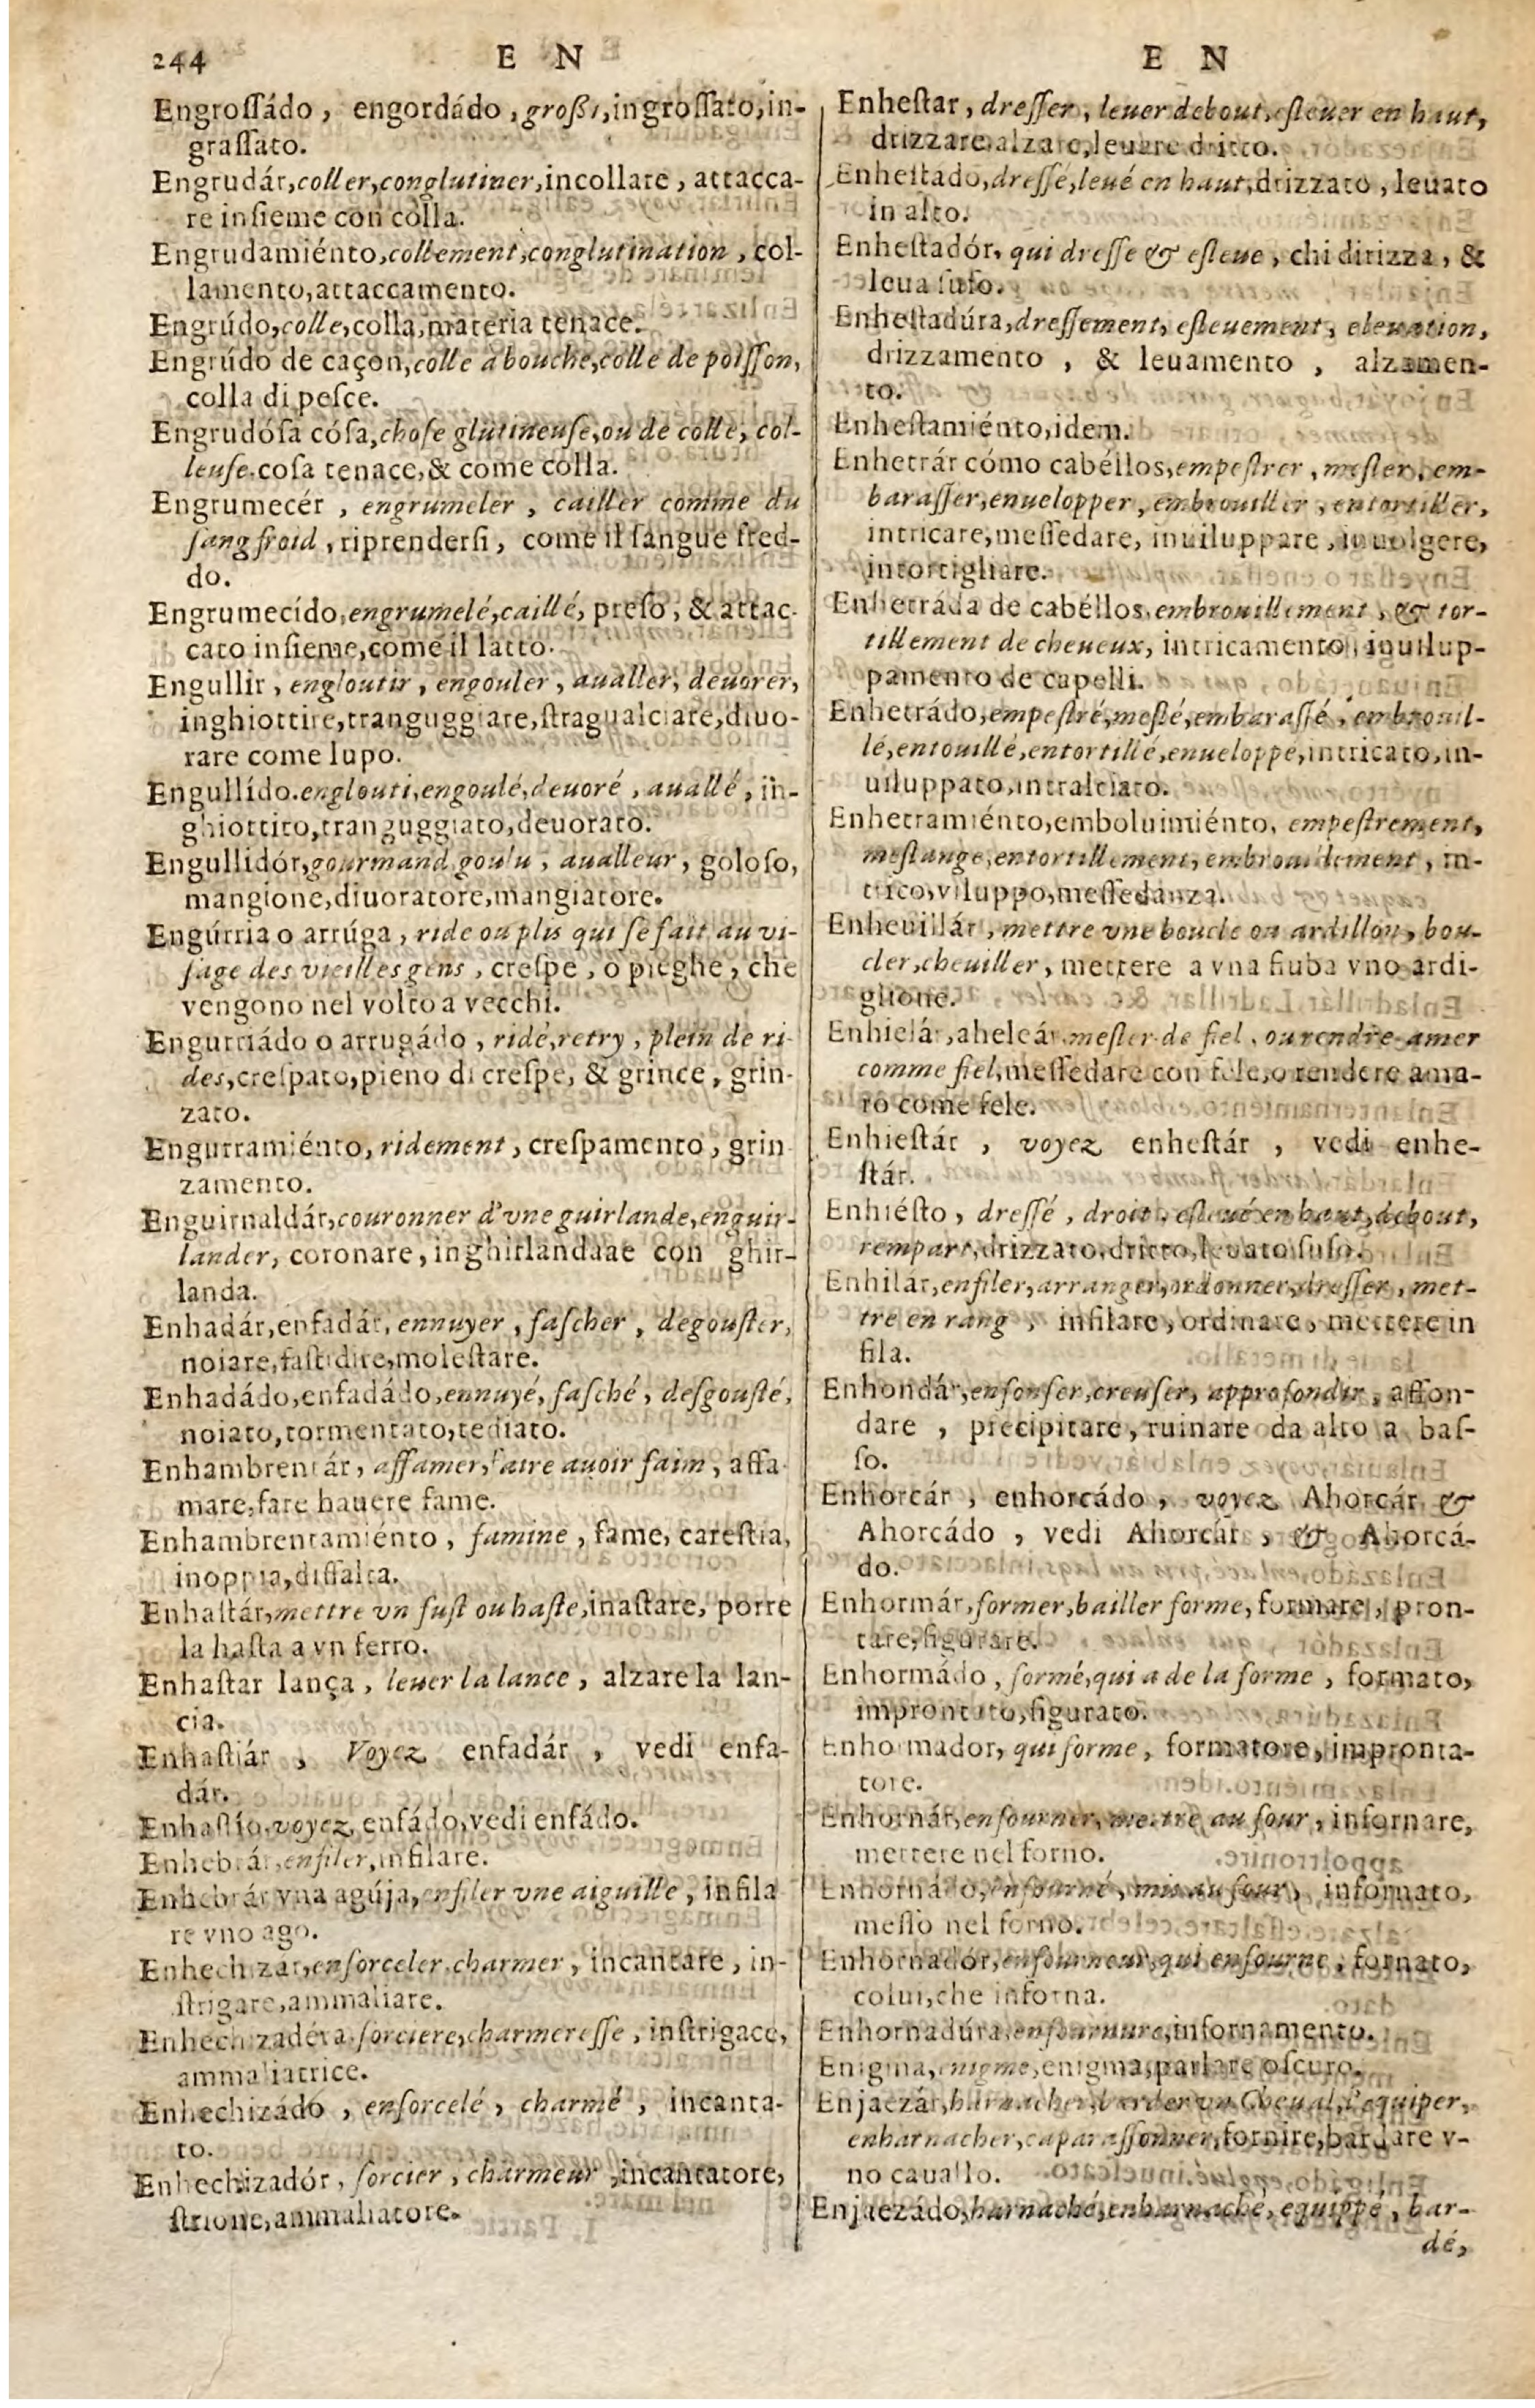 244 E N
Engroſſádo, engordádo, großi, ingroſſato, in-
graſſato.
Engrudár, coller, conglutiner, incollare, attacca-
re inſieme con colla.
Engrudamiénto, collement, conglutination, col-
lamento, attaccamento.
Engrúdo, colle, colla, materia tenace.
Engrúdo de caçon, colle a bouche, colle de poiſſon,
colla di peſce.
Engrudóſa cóſa, choſe glutineuſe, ou de colle, col-
leuſe. coſa tenace, & come colla.
Engrumecér, engrumeler, cailler comme du
ſang froid, riprenderſi, come il ſangue fred-
do.
Engrumecído, engrumelé, caillé, preſo, & attac-
cato inſieme, come il latto.
Engullir, engloutir, engouler, aualler, deuorer,
inghiottire, tranguggiare, ſtragualciare, diuo-
rare come lupo.
Engullído. englouti, engoulé, deuoré, auallé, in-
ghiottito, tranguggiato, deuorato.
Engullidór, gourmand, goulu, aualleur, goloſo,
mangione, diuoratore, mangiatore.
Engúrria o arrúga, ride ou plis qui ſe fait au vi-
ſage des vieilles gens, creſpe, o pieghe, che
vengono nel volto a vecchi.
Engurriádo o arrugádo, ridé, retry, plein de ri-
des, creſpato, pieno di creſpe, & grince, grin-
zato.
Engurramiénto, ridement, creſpamento, grin
zamento.
Enguirnaldár, couronner d'vne guirlande, enguir-
lander, coronare, inghirlandaae con ghir-
landa.
Enhadár, enfadár, ennuyer, faſcher, degouſter,
noiare, faſtidire, moleſtare.
Enhadádo, enfadádo, ennuyé, faſché, deſgouſté,
noiato, tormentato, tediato.
Enhambrentár, affamer, faire auoir faim, affa
mare, fare hauere fame.
Enhambrentamiénto, famine, fame, careſtia,
inoppia, diffalta.
Enhaſtár, mettre vn fuſt ou haſte, inaſtare, porre
la haſta a vn ferro.
Enhaſtar lança, leuer la lance, alzare la lan-
cia.
Enhaſtiár, Voyez enfadár, vedi enfa-
dár.
Enhaſtío, voyez enfádo, vedi enfádo.
Enhebrár, enfiler, infilare.
Enhebrár vna agúja, enfiler vne aiguille, infila
re vno ago.
Enhechizár, enſorceler, charmer, incantare, in-
ſtrigare, ammaliare.
Enhechizadéra. ſorciere, charmereſſe, inſtrigace,
ammaliatrice.
Enhechizádo, enſorcelé, charmé, incanta-
to.
Enhechizadór, ſorcier, charmeur, incantatore,
ſtrione, ammaliatore.
E N
Enheſtar, dreſſer, leuer debout, eſleuer en haut,
drizzare, alzare, leuare dritto.
Enheſtado, dreſſé, leué en haut, drizzato, leuato
in alto.
Enheſtadór, qui dreſſe & eſleue, chi dirizza, &
leua ſuſo.
Enheſtadúra, dreſſement, eſleuement, eleuation,
drizzamento, & leuamento, alzamen-
to.
Enheſtamiénto, idem.
Enhetrár cómo cabéllos, empeſtrer, meſler, em-
baraſſer, enuelopper, embrouiller, entortiller,
intricare, meſſedare, inuiluppare, inuolgere,
intortigliare.
Enhetráda de cabéllos, embrouillement, & tor-
tillement de cheueux, intricamento, inuilup-
pamento de capelli.
Enhetrádo, empeſtré, meſlé, embaraſſé, embrouil-
lé, entouillé, entortillé, enueloppé, intricato, in-
uiluppato, intralciato.
Enhetramiénto, emboluimiénto, empeſtrement,
meſlange, entortillement, embrouillement, in-
trico, viluppo, meſſedanza.
Enheuillár, mettre vne boucle ou ardillon, bou-
cler, cheuiller, mettere a vna fiuba vno ardi-
glione.
Enhielár, aheleár. meſler de fiel, ou rendre amer
comme fiel, meſſedare con fele, o rendere ama-
ro come fele.
Enhieſtár, voyez enheſtár, vedi enhe-
ſtár.
Enhiéſto, dreſſé, droit, eſleué en haut, debout,
rempart, drizzato, dritto, leuato ſuſo.
Enhilár, enfiler, arranger, ordonner, dreſſer, met-
tre en rang, infilare, ordinare, mettere in
fila.
Enhondár, enfonſer, creuſer, approfondir, affon-
dare, precipitare, ruinare da alto a baſ-
ſo.
Enhorcár, enhorcádo, voyez Ahorcár &
Ahorcádo, vedi Ahorcár, & Ahorcá-
do.
Enhormár, former, bailler forme, formare, pron-
tare, figurare.
Enhormádo, formé, qui a de la forme, formato,
improntato, figurato.
Enhormador, qui forme, formatore, impronta-
tore.
Enhornár, enfourner, mettre au four, infornare,
mettere nel forno.
Enhornádo, enfourné, mis au four, infornato,
meſſo nel forno.
Enhornadór, enfourneur, qui enfourne, fornato,
colui, che inforna.
Enhornadúra, enfournure, infornamento.
Enigma, enigme, enigma, parlare oſcuro.
Enjaezár, harnacher, barder vn Cheual, l'equiper,
enharnacher, caparaſſonner, fornire, bardare v-
no cauallo.
Enjaezádo, harnaché, enharnaché, equippé, bar-
dé,